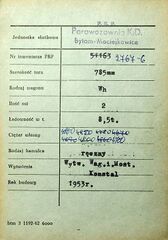 P.K.P.
Jednostka służbowa Parowozownia K.D.
Bytom-Maciejkowice
Nr inwentarza PKP 51163 2767-G
Szerokość toru 785mm
Rodzaj wagonu Wh
Ilość osi 2
Ładowność w t. 8,5t.
Ciężar własny
Rodzaj hamulca ręczny
Wyposażenie Wytw. Wag. i Most.
Konstal
Rok budowy 1953r.